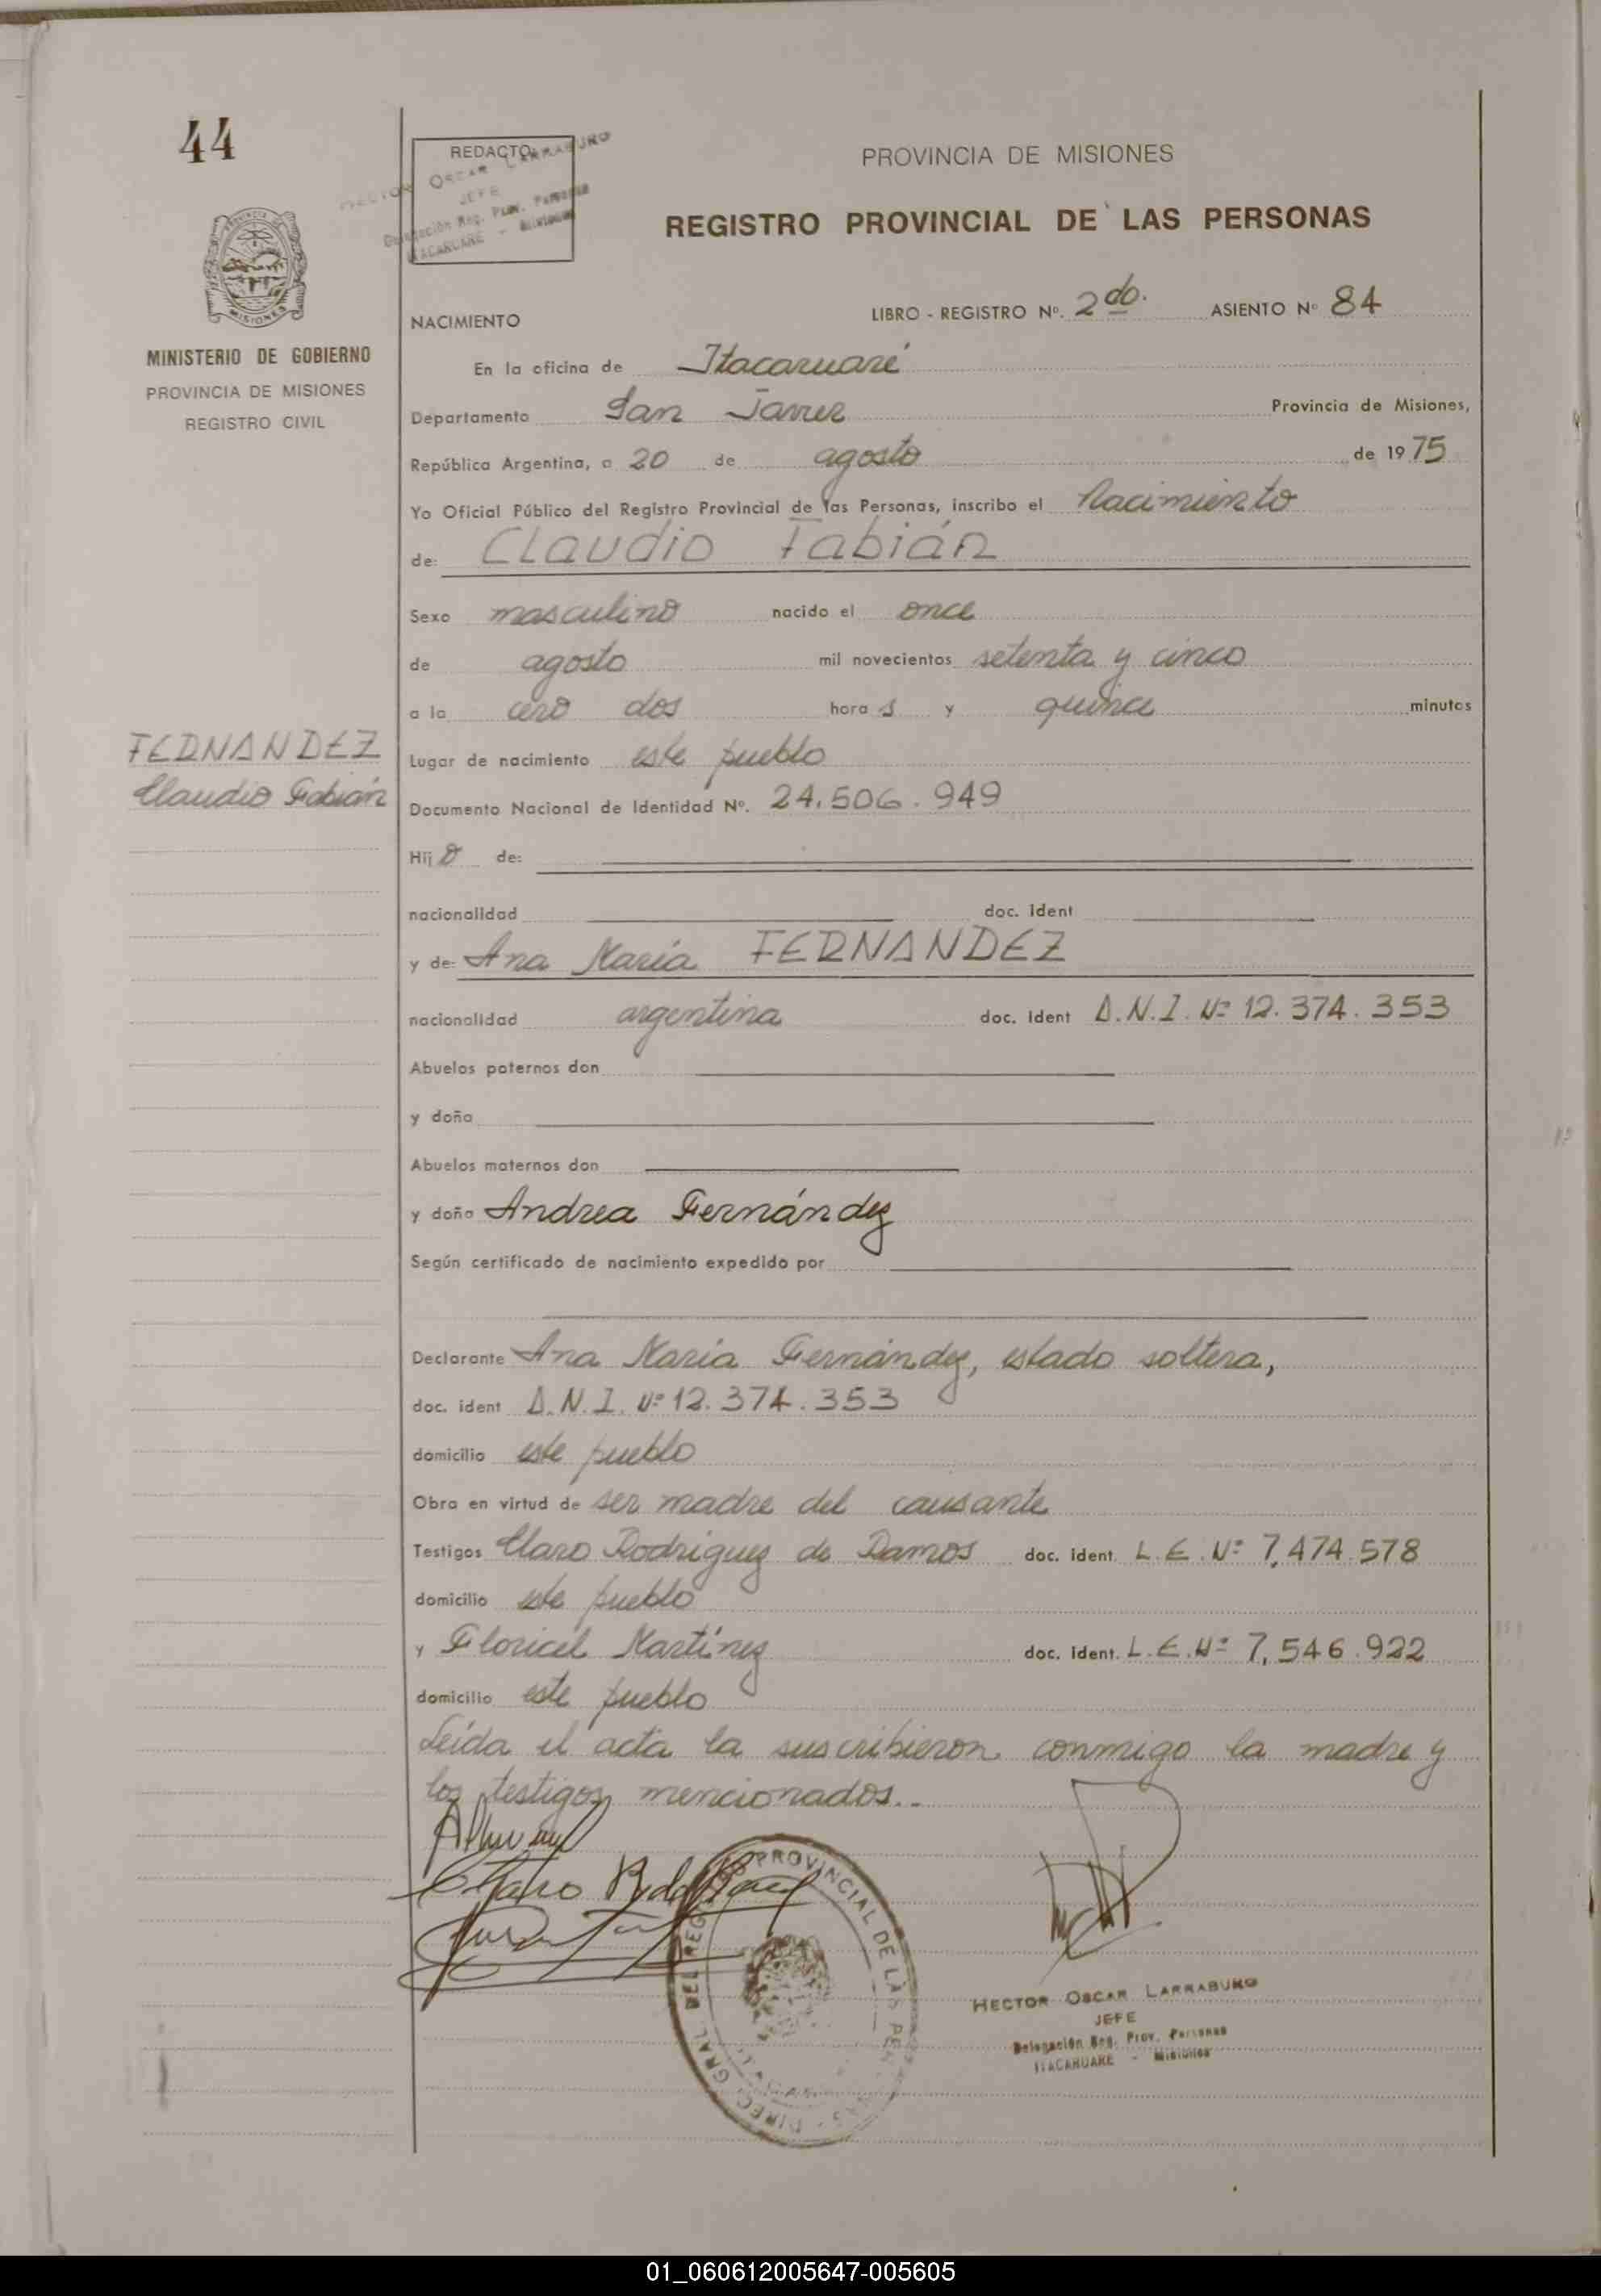 44
REDACTO:
HECTOR OSCAR LARRABURO
JEFE
Delegación Reg. Prov. Personas
ITACARUARE - Misiones
PROVINCIA DE MISIONES
REGISTRO PROVINCIAL DE LAS PERSONAS
MISIONES
MINISTERIO DE GOBIERNO
PROVINCIA DE MISIONES
REGISTRO CIVIL
NACIMIENTO
LIBRO - REGISTRO Nº. 2do. ASIENTO Nº 84
En la oficina de Itacaruaré
Departamento San Javier Provincia de Misiones,
República Argentina, a 20 de agosto de 1975
Yo Oficial Público del Registro Provincial de las Personas, inscribo el Nacimiento
de: Claudio Fabián
Sexo masculino nacido el once
de agosto mil novecientos setenta y cinco
a la cero dos hora s y quince minutos
FERNANDEZ
Claudio Fabián
Lugar de nacimiento este pueblo
Documento Nacional de Identidad Nº. 24.506.949
Hij o de:
nacionalidad doc. ident
y de: Ana María FERNANDEZ
nacionalidad argentina doc. ident D.N.I. Nº 12.374.353
Abuelos paternos don
y doña
Abuelos maternos don
y doña Andrea Fernández
Según certificado de nacimiento expedido por
Declarante Ana María Fernández, estado soltera,
doc. ident D.N.I. Nº 12.374.353
domicilio este pueblo
Obra en virtud de ser madre del causante
Testigos Claro Rodriguez de Ramos doc. ident. L.E. Nº 7,474.578
domicilio este pueblo
y Floricel Martínez doc. ident. L.E. Nº 7,546.922
domicilio este pueblo
Leída el acta la suscribieron conmigo la madre y
los testigos mencionados..
DIREC. GRAL. DEL REGISTRO PROVINCIAL DE LAS PERSONAS
HECTOR OSCAR LARRABURO
JEFE
Delegación Reg. Prov. Personas
ITACARUARE - Misiones
01_060612005647-005605